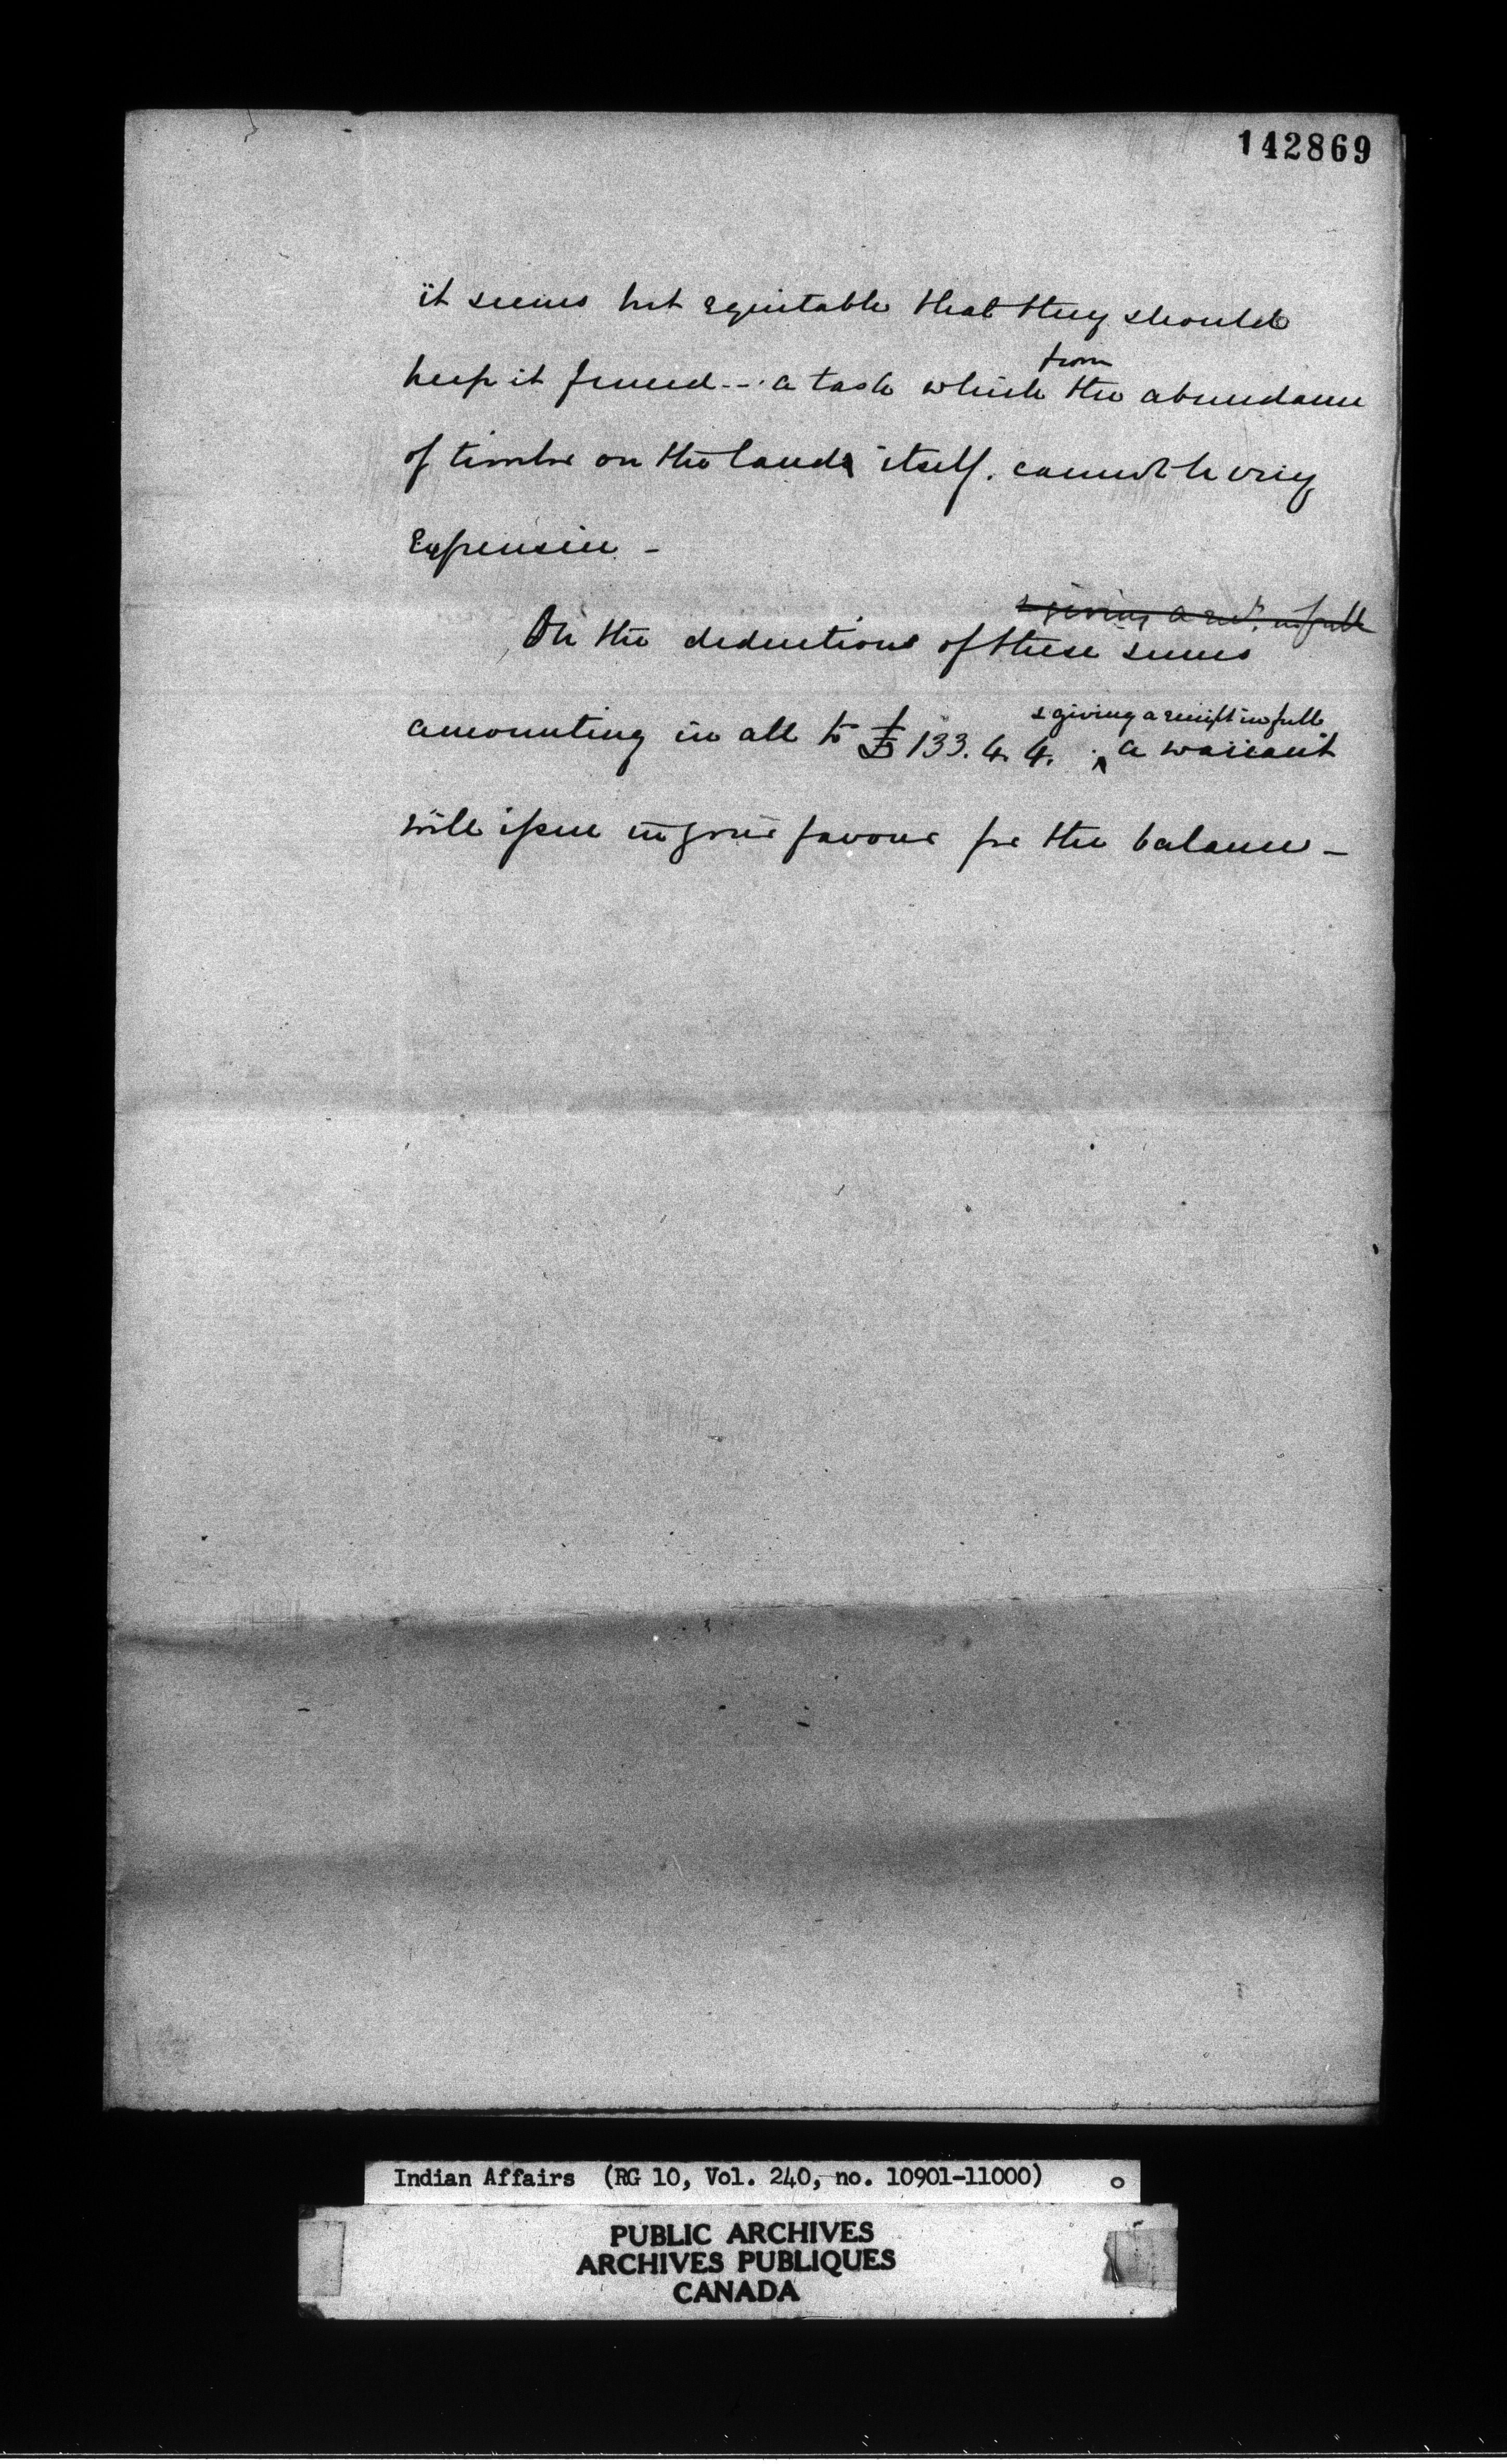 142869
it seems but equitable that they should
from
keep it fenced --. a task which the abundance
of timber on the land itself. cannot be very
Expensive -
& giving a rec^t. in full
On the deductions of these sums
& giving a receipt in full
amounting in all to £133. 4. 4. ; a warrant
will issue in your favour for the balance -
Indian Affairs (RG 10, Vol. 240, no. 10901-11000)
PUBLIC ARCHIVES
ARCHIVES PUBLIQUES
CANADA